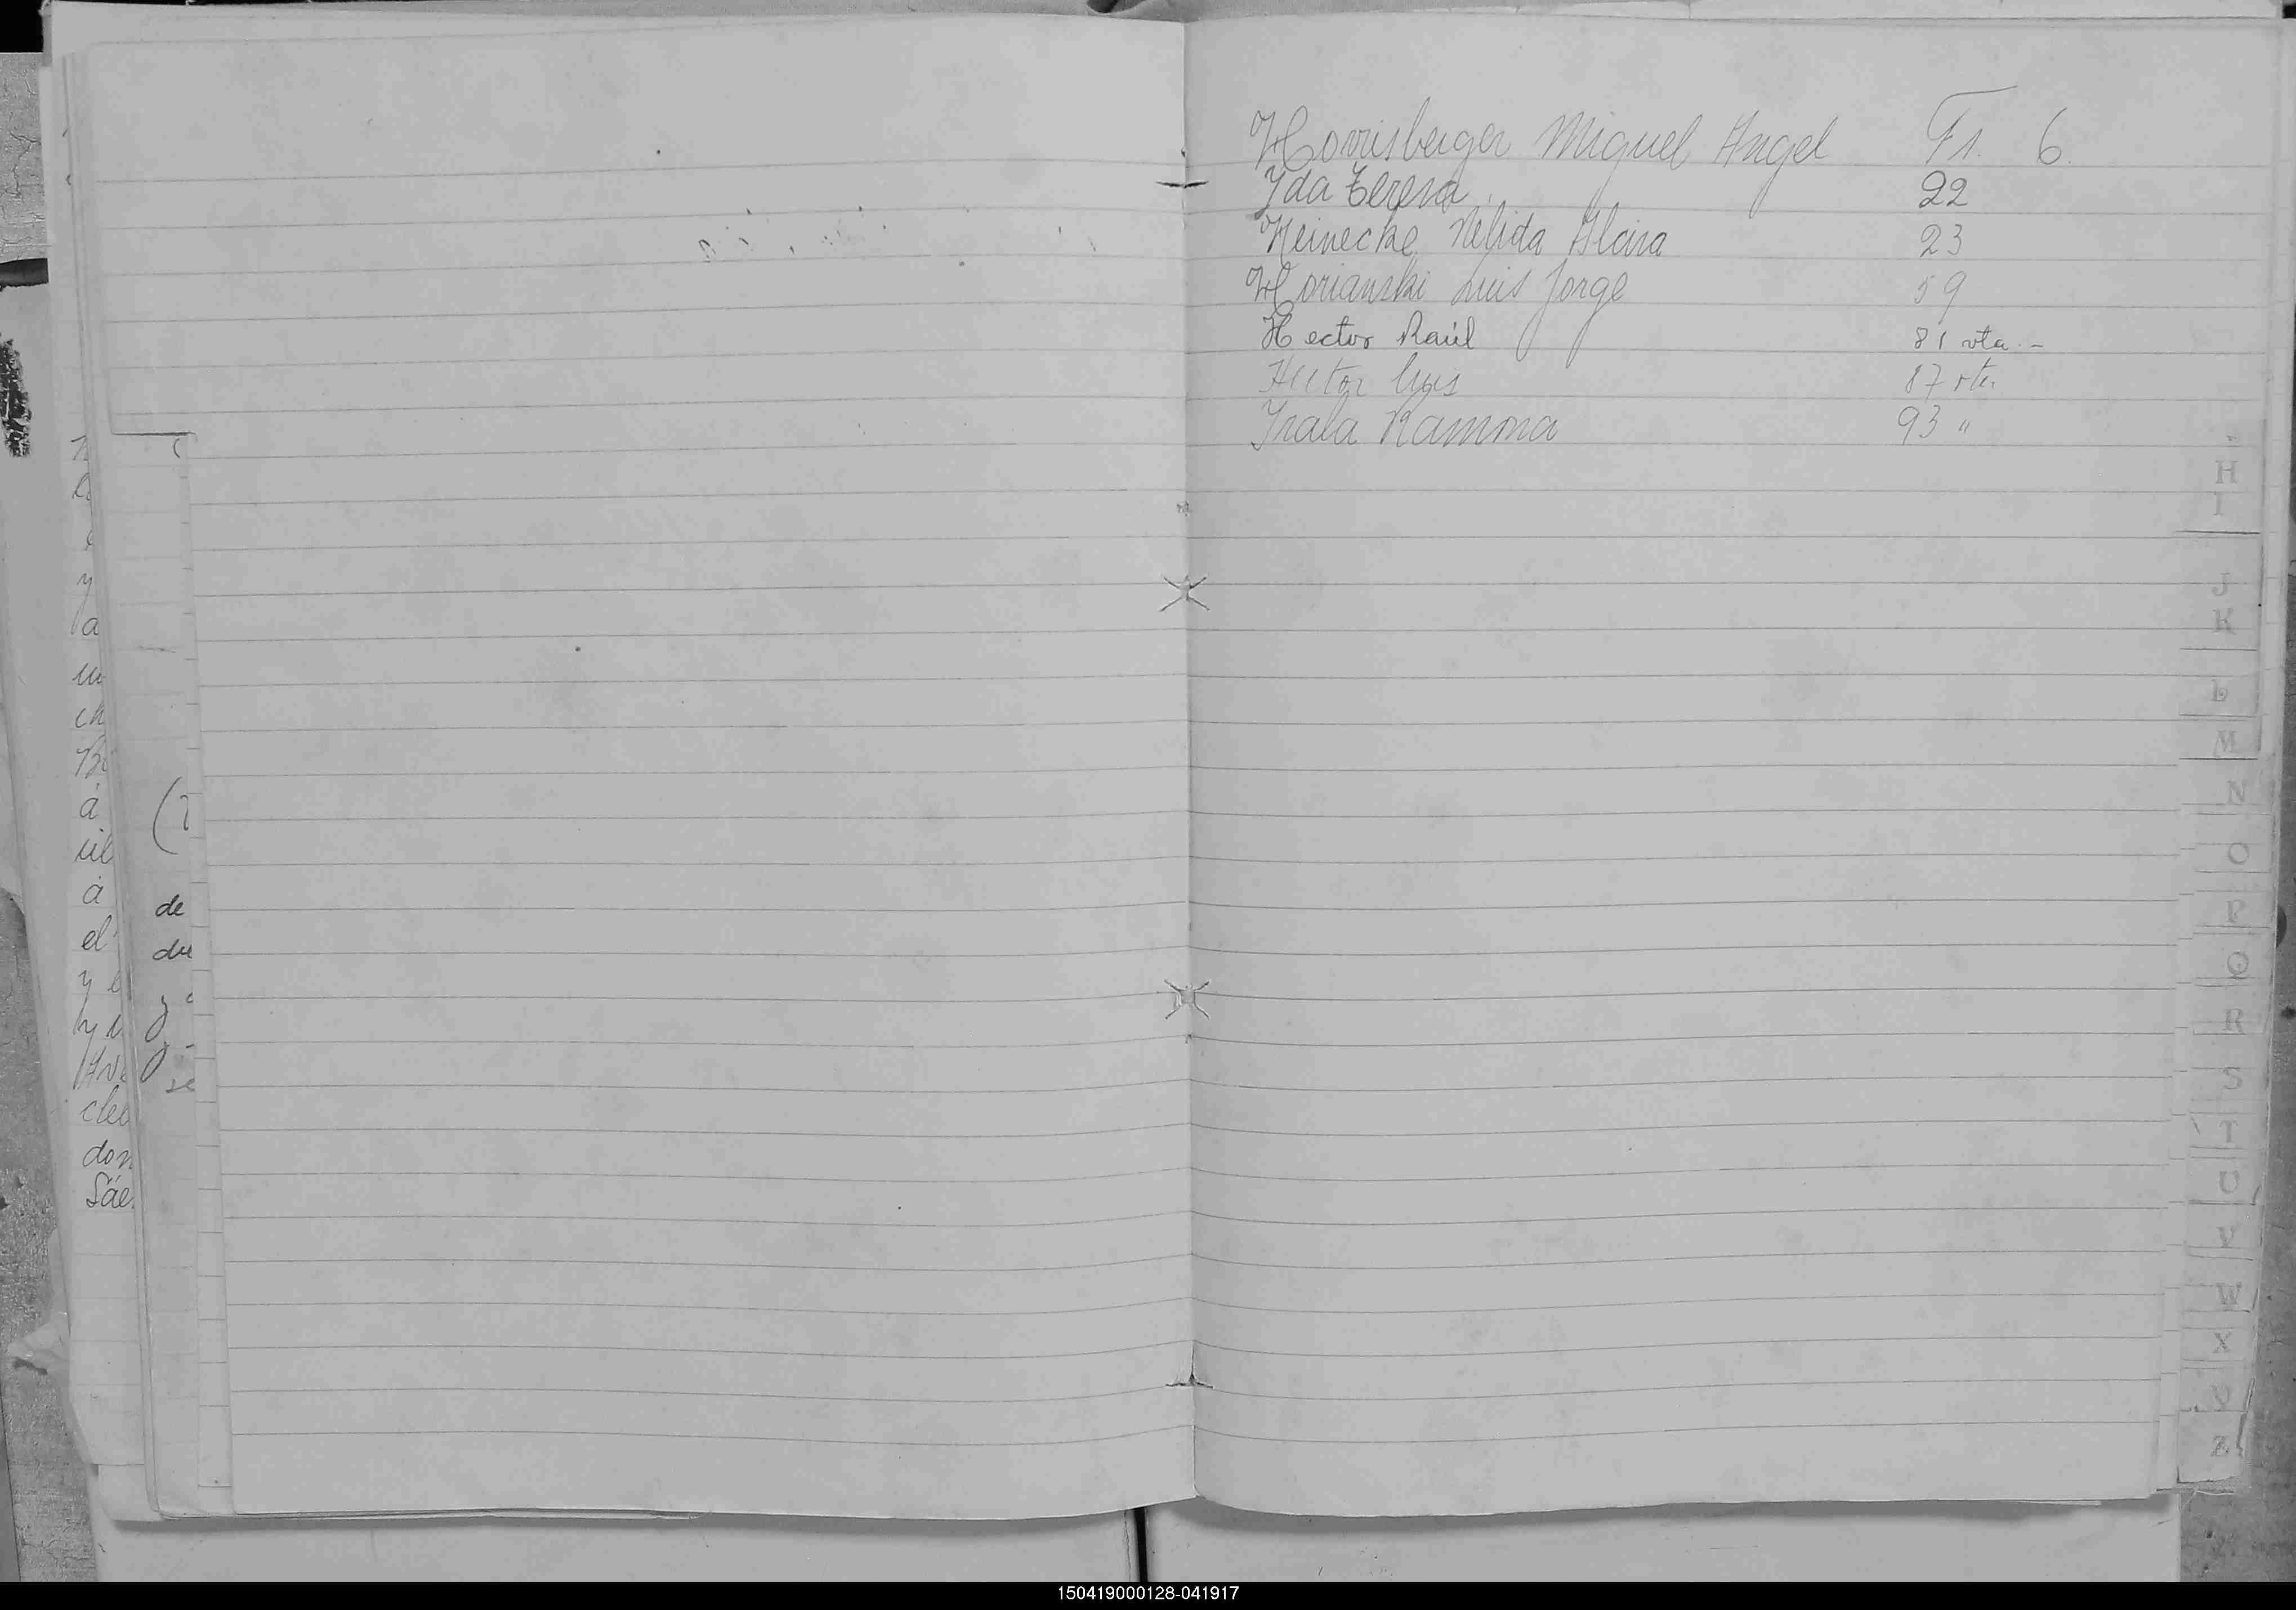 Horrisberger Miguel Angel Fs. 6.
Ida Teresa 22
Heinecke Nelida Alcira 23
Horianski Luis Jorge 59
Hector Raúl 81 vta.-
Hector Luis 87 vta.
Irala Ramona 93 "
H
I
J
K
L
M
N
O
P
Q
R
S
T
U
V
W
X
Z
a
un
ch
a
a
el
don
Sáe
de
150419000128-041917